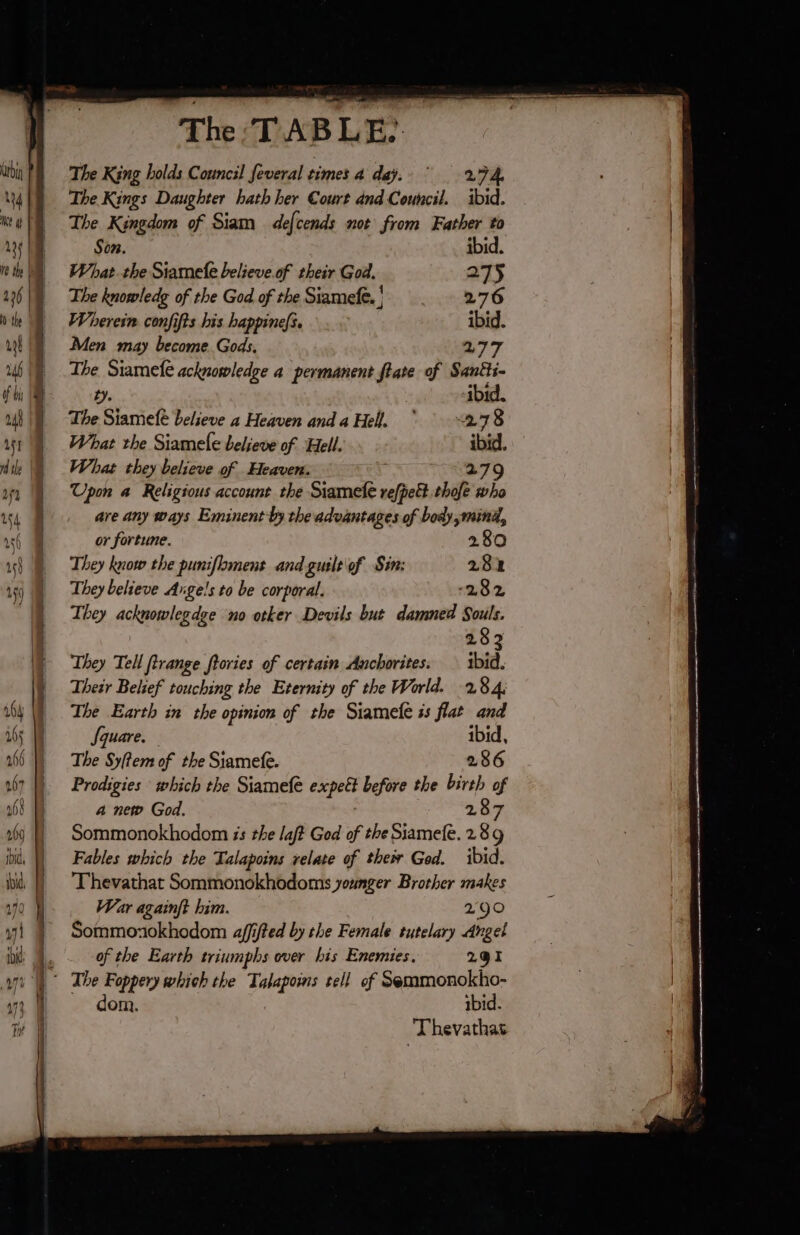 The TABLE.
The King holds Council ſeveral times a day. 274
The Kings Daughter hath her Court and Council. ibid.
The Kingdom of Siam deſcends not from Father to
Son. ibid.
What the Siameſe believe of their God. 275
The knowledg of the God of the Siameſe. 276
Wherein conſiſts his happineſs. ibid.
Men may become Gods. 277
The Siameſe acknowledge a permanent ſtate of Sancti-
ty. ibid.
The Siameſe believe a Heaven and a Hell. 278
What the Siameſe believe of Hell. ibid.
What they believe of Heaven. 279
Upon a Religious account the Siameſe reſpect thoſe who
are any ways Eminent by the advantages of body, mind,
or fortune. 280
They know the puniſhment and guilt of Sin: 281
They believe Angels to be corporal. 282
They acknowlegdge no other Devils but damned Souls.
283
They Tell ſtrange ſtories of certain Anchorites. ibid.
Their Belief touching the Eternity of the World. 284
The Earth in the opinion of the Siameſe is flat and
ſquare. ibid,
The Syſtem of the Siameſe. 286
Prodigies which the Siameſe expect before the birth of
a new God. 287
Sommonokhodom is the laſt God of the Siameſe. 289
Fables which the Talapoins relate of their God. ibid.
Thevathat Sommonokhodoms younger Brother makes
War againſt him. 290
Sommonokhodom aſſiſted by the Female tutelary Angel
of the Earth triumphs over his Enemies. 291
The Foppery which the Talapoins tell of Sommonokho-
dom. ibid.
Thevathat